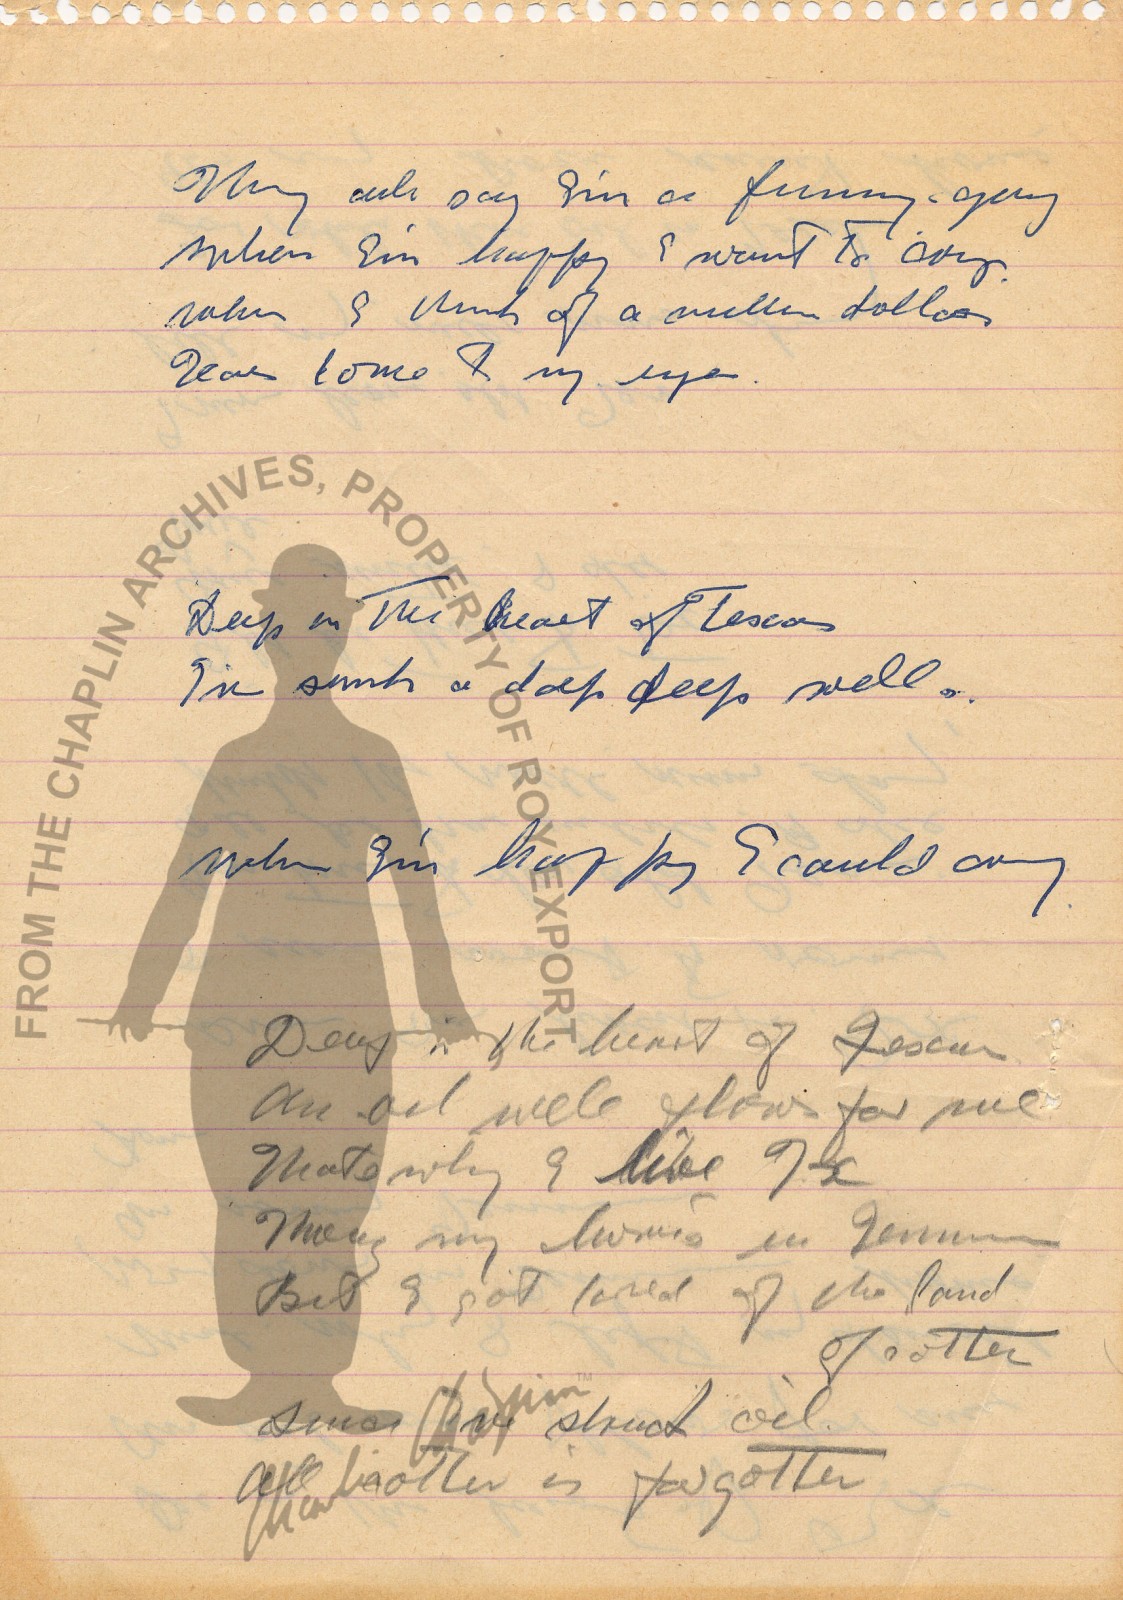 They all say I'm a funny guy
when I'm happy I want to cry.
when I think of a million dollars
Tears come to my eyes.
FROM THE CHAPLIN ARCHIVES, PROPERTY OF ROY EXPORT
Deep in the heart of Texas
I've sunk a deep deep well.
when I'm happy I could cry.
Deep in the heart of Texas
An oil well flows for me
Thats why I live
my home's in
But I got tired of the land
of cotten
since I've struck oil.
all cotten is forgotten
Charlie Chaplin
TM